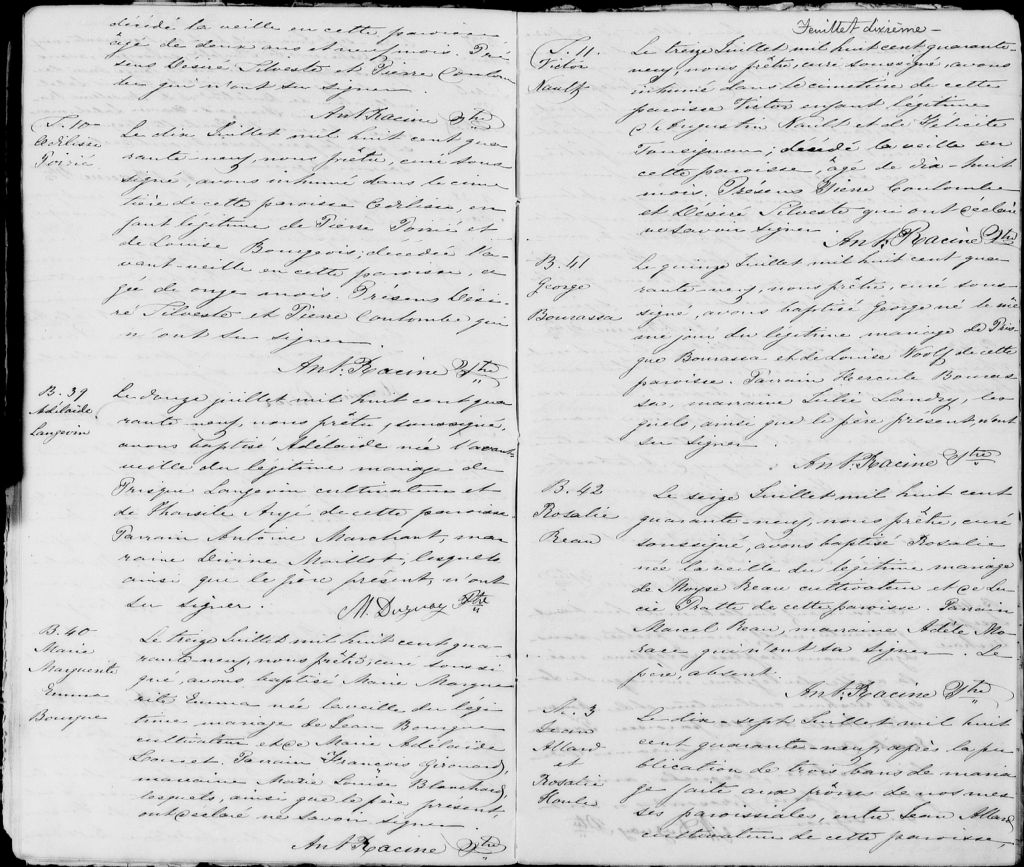 décédé la veille en cette paroisse
âgé de deux ans et neuf mois. Pré-
sens Désiré Silveste et Pierre Coulom-
be qui n'ont su signer.
Ant. Racine Ptre
S. 10
Edilise
Poirié
Le dix Juillet mil huit cent qua-
rante-neuf, nous prêtre, curé sous-
signé, avons inhumé dans le cime
tière de cette paroisse Edilise, en-
fant légitime de Pierre Poirié et
de Louise Bourgeois; décédée l'a-
vant-veille en cette paroisse, â-
gée de onze mois. Présens Dési-
ré Silveste et Pierre Coulombe qui
n'ont su signer.
Ant. Racine Ptre
B. 39
Adélaïde
Langevin
Le douze juillet mil huit cent qua-
rante-neuf, nous prêtre, soussigné,
avons baptisé Adélaïde née l'avant-
veille du légitime mariage de
Prisque Langevin cultivateur et
de Tharsile Angé de cette paroisse.
Parrain Antoine Marchant, mar-
raine Divine Maillot, lesquels
ainsi que le père présent, n'ont
su signer.
M. Duguay Ptre
B. 40
Marie
Marguerite
Emma
Bourque
Le treize Juillet mil huit cent qua-
rante-neuf, nous prêtre, curé soussi
gné, avons baptisé Marie Margue
rite Emma née la veille du légi-
time mariage de Jean Bourque
cultivateur et de Marie Adélaïde
Parrain François Girouard,
marraine Marie Louise Blanchard
lesquels, ainsi que le père présent,
ont déclaré ne savoir signer.
Ant. Racine Ptre
Feuillet dixième
S. 11.
Victor
Nault
Le treize Juillet mil huit cent quarante-
neuf, nous prêtre, curé soussigné, avons
inhumé dans le cimetière de cette
paroisse Victor enfant légitime
d'Augustin Nault et de Félicité
Tousignan; décédé la veille en
cette paroisse, âgé de dix-huit
mois. Présens Pierre Coulombe
et Désiré Silveste qui ont déclaré
ne savoir signer.
Ant. Racine Ptre
B. 41
George
Bourassa
Le quinze Juillet mil huit cent qua-
rante-neuf, nous prêtre, curé sous-
signé, avons baptisé George né le mê
me jour du légitime mariage de Pris-
que Bourassa et de Louise Woolf de cette
paroisse. Parrain Hercule Bouras-
sa, marraine Lillé Landry, les-
quels, ainsi que le père présent, n'ont
su signer.
Ant. Racine Ptre
B. 42
Rosalie
Beau
Le seize Juillet mil huit cent
quarante-neuf, nous prêtre, curé
soussigné, avons baptisé Rosalie
née la veille du légitime mariage
de Moyse Beau cultivateur et de Lu-
cie Pratte de cette paroisse. Parrain
Marcel Beau, marraine Adèle Mo-
race qui n'ont su signer. Le
père, absent.
Ant. Racine Ptre
M. 3
Jean
Allard
et
Rosalie
Houle
Le dix-sept Juillet mil huit
cent quarante-neuf, après la pu-
blication de trois bans de maria
ge faite aux prônes de nos mes-
ses paroissiales, entre Jean Allard
cultivateur de cette paroisse,